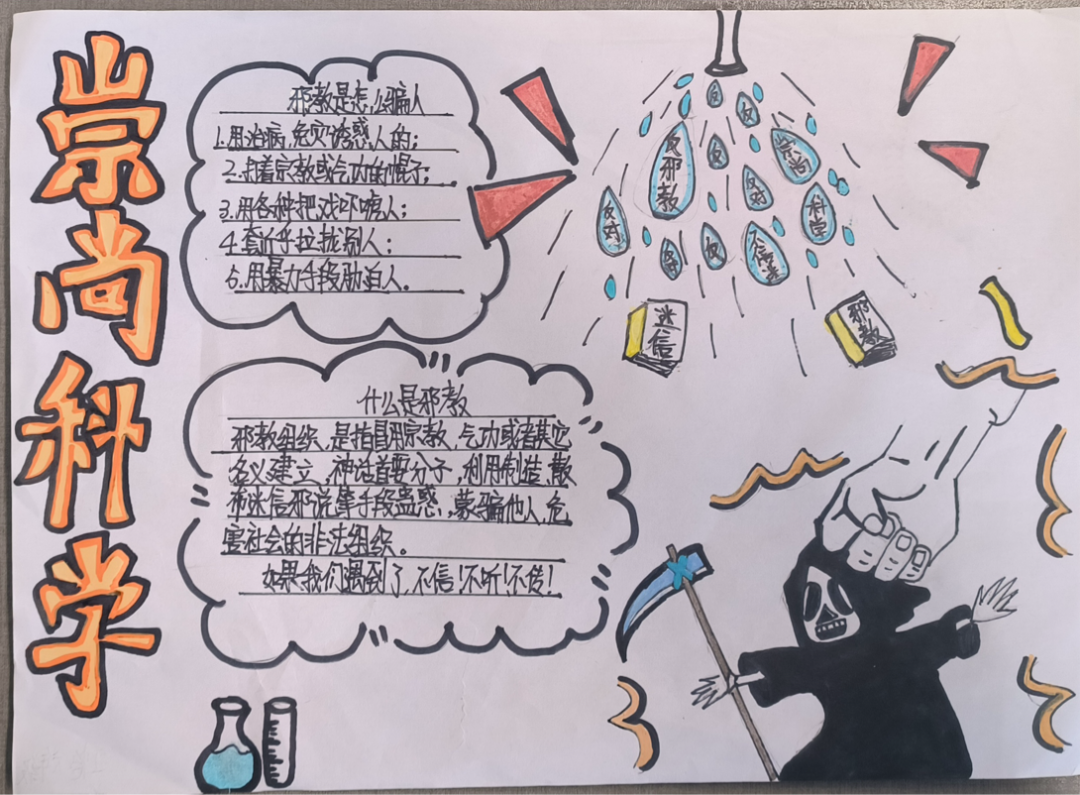 崇尚科学
邪教是怎么骗人
1.用治病,免灾诱惑人的;
2.打着宗教或气功的幌子;
3.用各种把戏吓唬人;
4.套近乎拉拢别人;
5.用暴力手段胁迫人。
反
反
反邪教
反
崇尚
反对
反对
科学
反
不信谣
迷信
邪教
什么是邪教
邪教组织,是指冒用宗教、气功或者其它
名义建立,神话首要分子,利用制造、散
布迷信邪说等手段蛊惑,蒙骗他人,危
害社会的非法组织。
如果我们遇到了,不信!不听!不传!